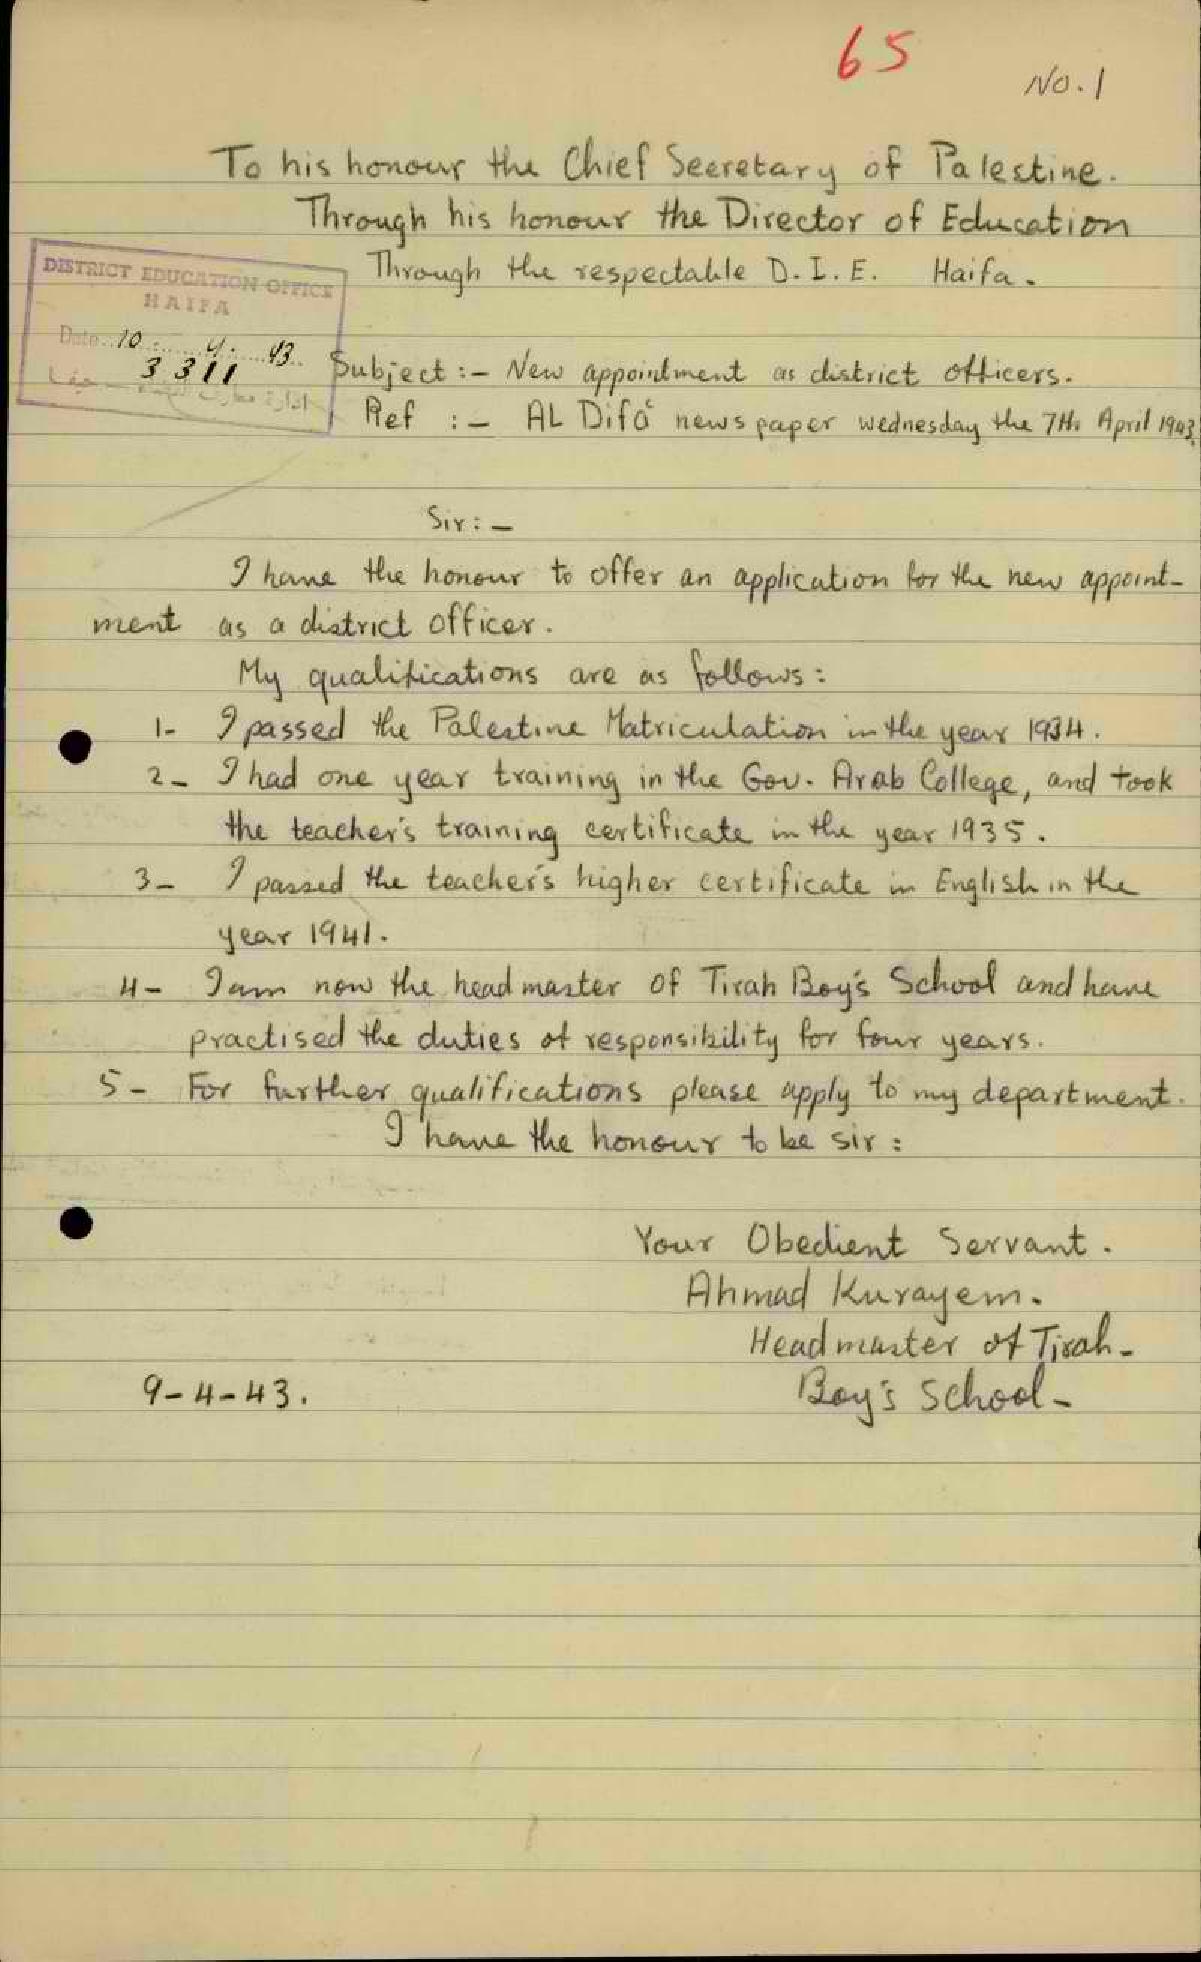 65
No. 1
To his honour the Chief Secretary of Palestine.
Through his honour the Director of Education
Through the respectable D. I. E. Haifa.
DISTRICT EDUCATION OFFICE
HAIFA
Date 10. 4. 43
3311
Subject :- New appointment as district officers.
Ref :- AL Difa' newspaper wednesday the 7th April 1943.
Sir:-
I have the honour to offer an application for the new appoint-
ment as a district officer.
My qualifications are as follows:
1- I passed the Palestine Matriculation in the year 1934.
2- I had one year training in the Gov. Arab College, and took
the teacher's training certificate in the year 1935.
3- I passed the teacher's higher certificate in English in the
year 1941.
4- I am now the headmaster of Tirah Boy's School and have
practised the duties of responsibility for four years.
5- For further qualifications please apply to my department.
I have the honour to be sir:
Your Obedient Servant.
Ahmad Kurayem.
Headmaster of Tirah-
9-4-43.
Boy's School-